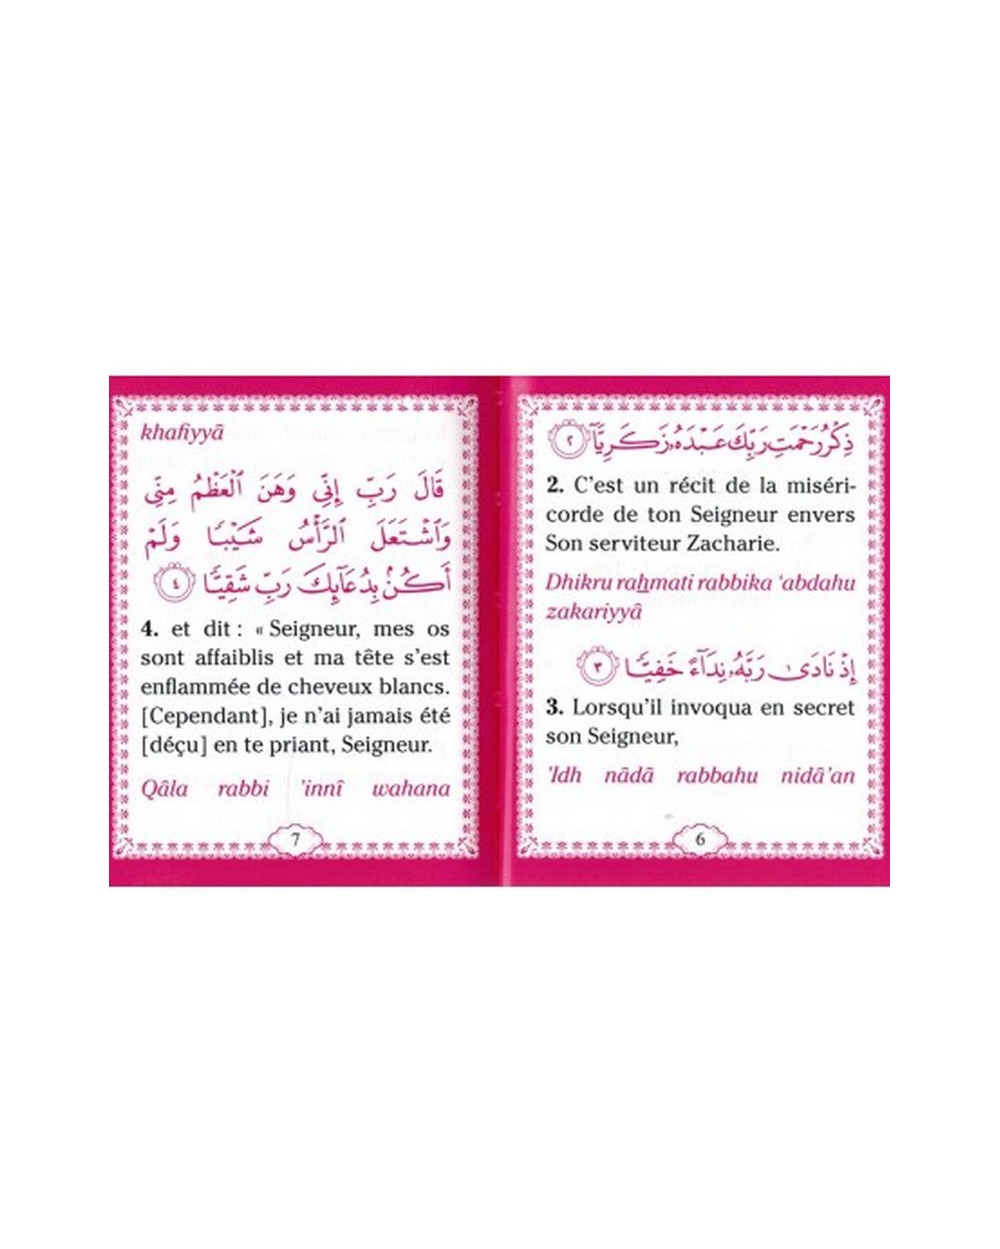 ذِكْرُ رَحْمَتِ رَبِّكَ عَبْدَهُۥ زَكَرِيَّآ ٢
2. C'est un récit de la miséri-
corde de ton Seigneur envers
Son serviteur Zacharie.
Dhikru raẖmati rabbika ‘abdahu
zakariyyâ
إِذْ نَادَىٰ رَبَّهُۥ نِدَآءً خَفِيًّا ٣
3. Lorsqu'il invoqua en secret
son Seigneur,
'Idh nādā rabbahu nidâ'an
6
khafiyyā
قَالَ رَبِّ إِنِّي وَهَنَ ٱلْعَظْمُ مِنِّي
وَٱشْتَعَلَ ٱلرَّأْسُ شَيْبًا وَلَمْ
أَكُنۢ بِدُعَآئِكَ رَبِّ شَقِيًّا ٤
4. et dit : « Seigneur, mes os
sont affaiblis et ma tête s'est
enflammée de cheveux blancs.
[Cependant], je n'ai jamais été
[déçu] en te priant, Seigneur.
Qâla rabbi 'innî wahana
7